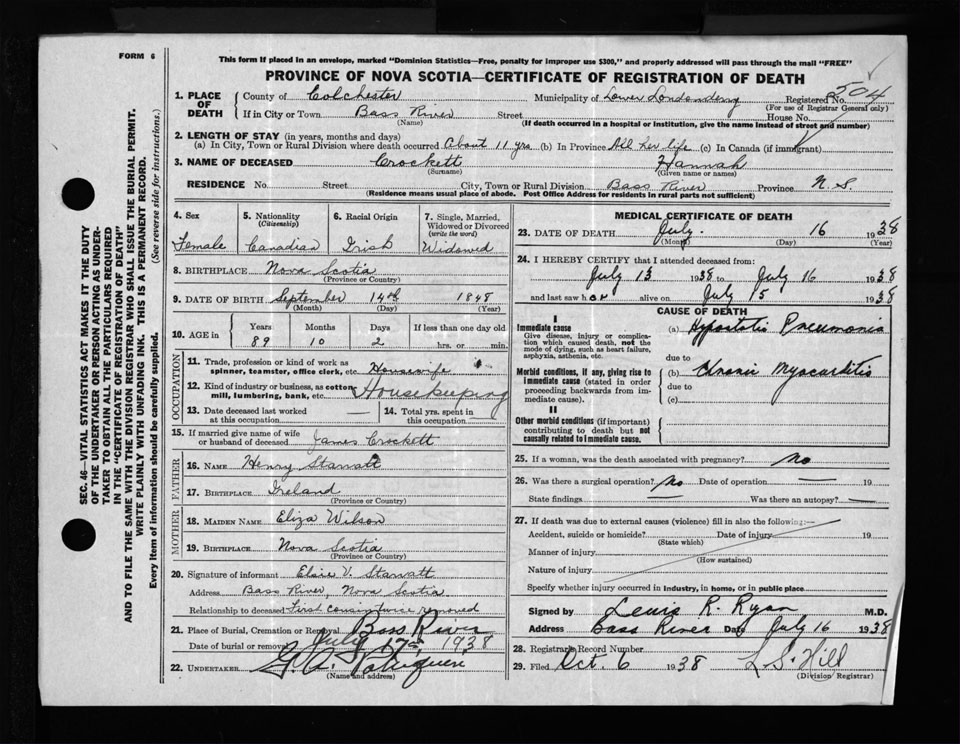 FORM 6
This form if placed in an envelope, marked "Dominion Statistics—Free, penalty for improper use $300," and properly addressed will pass through the mail "FREE"
PROVINCE OF NOVA SCOTIA—CERTIFICATE OF REGISTRATION OF DEATH
1. PLACE OF DEATH
County of Colchester Municipality of Lower Londonderry Registered No. 504
(For use of Registrar General only)
If in City or Town Bass River Street House No.
(Name) (If death occurred in a hospital or institution, give the name instead of street and number)
2. LENGTH OF STAY (in years, months and days)
(a) In City, Town or Rural Division where death occurred About 11 yrs (b) In Province All her life (c) In Canada (if immigrant)
3. NAME OF DECEASED Crockett Hannah
(Surname) (Given name or names)
RESIDENCE No. Street City, Town or Rural Division Bass River Province N.S.
(Residence means usual place of abode. Post Office Address for residents in rural parts not sufficient)
4. Sex
Female
5. Nationality
(Citizenship)
Canadian
6. Racial Origin
Irish
7. Single, Married, Widowed or Divorced
(write the word)
Widowed
8. BIRTHPLACE Nova Scotia
(Province or Country)
9. DATE OF BIRTH September 14th 1848
(Month) (Day) (Year)
10. AGE in
Years Months Days If less than one day old
89 10 2 hrs. or min.
OCCUPATION
11. Trade, profession or kind of work as
spinner, teamster, office clerk, etc Housewife
12. Kind of industry or business, as cotton
mill, lumbering, bank, etc. Housekeeping
13. Date deceased last worked
at this occupation —
14. Total yrs. spent in
this occupation
15. If married give name of wife
or husband of deceased James Crockett
FATHER
16. NAME Henry Starratt
17. BIRTHPLACE Ireland
(Province or Country)
MOTHER
18. MAIDEN NAME Eliza Wilson
19. BIRTHPLACE Nova Scotia
(Province or Country)
20. Signature of informant Elsie V. Starratt
Address Bass River, Nova Scotia
Relationship to deceased First cousin twice removed
21. Place of Burial, Cremation or Removal Bass River
Date of burial or removal July 17th 1938
22. UNDERTAKER G. A.
(Name and address)
MEDICAL CERTIFICATE OF DEATH
23. DATE OF DEATH July 16 1938
(Month) (Day) (Year)
24. I HEREBY CERTIFY that I attended deceased from:
July 13 1938 to July 16 1938
and last saw her alive on July 15 1938
CAUSE OF DEATH
I
Immediate cause
Give disease, injury or complication which caused death, not the mode of dying, such as heart failure, asphyxia, asthenia, etc.
(a) Hypostatic Pneumonia
due to
Morbid conditions, if any, giving rise to immediate cause (stated in order proceeding backwards from immediate cause).
(b) Chronic Myocarditis
due to
(c)
II
Other morbid conditions (if important) contributing to death but not causally related to immediate cause.
25. If a woman, was the death associated with pregnancy? No
26. Was there a surgical operation? No Date of operation — 19
State findings — Was there an autopsy? —
27. If death was due to external causes (violence) fill in also the following:—
Accident, suicide or homicide? Date of injury 19
(State which)
Manner of injury
(How sustained)
Nature of injury
Specify whether injury occurred in industry, in home, or in public place
Signed by Lewis R. Ryan M.D.
Address Bass River Date July 16 1938
28. Registrar's Record Number
29. Filed Oct. 6 1938 L. S. Hill
(Division Registrar)
SEC. 46—VITAL STATISTICS ACT MAKES IT THE DUTY
OF THE UNDERTAKER OR PERSON ACTING AS UNDER-
TAKER TO OBTAIN ALL THE PARTICULARS REQUIRED
IN THE "CERTIFICATE OF REGISTRATION OF DEATH"
AND TO FILE THE SAME WITH THE DIVISION REGISTRAR WHO SHALL ISSUE THE BURIAL PERMIT.
WRITE PLAINLY WITH UNFADING INK. THIS IS A PERMANENT RECORD.
Every item of information should be carefully supplied. (See reverse side for instructions.)